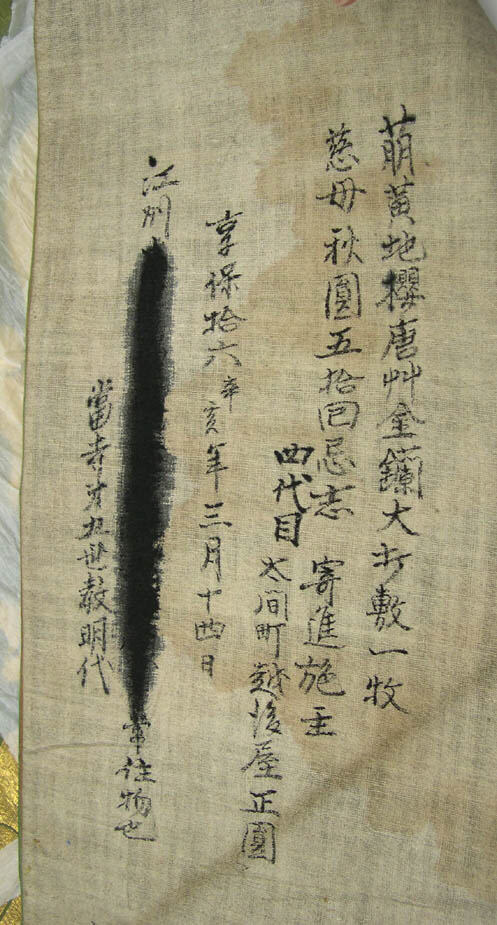 萌黄地櫻唐艸金襴大打敷一牧
慈母秋圓五拾回忌志 寄進施主
四代目 太間町越後屋正圓
享保拾六辛亥年三月十四日
江州 常住物也
當寺才九世教明代